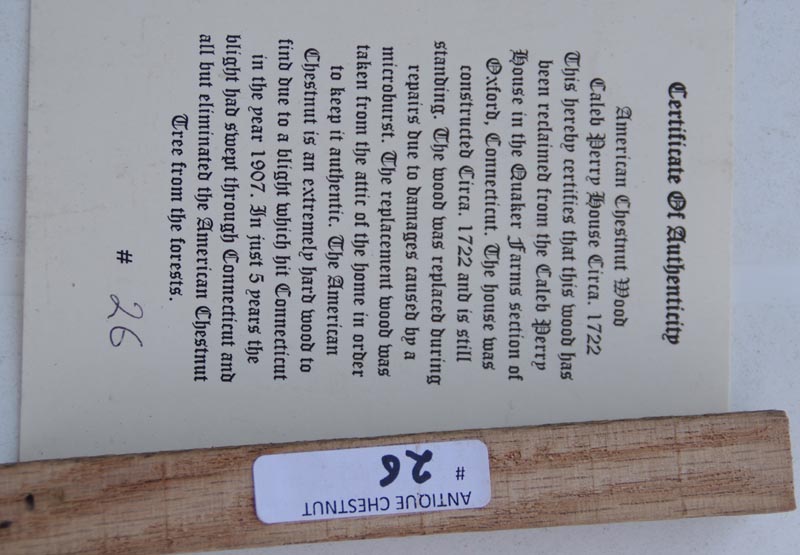 Certificate Of Authenticity
American Chestnut Wood
Caleb Perry House Circa. 1722
This hereby certifies that this wood has
been reclaimed from the Caleb Perry
House in the Quaker Farms section of
Oxford, Connecticut. The house was
constructed Circa. 1722 and is still
standing. The wood was replaced during
repairs due to damages caused by a
microburst. The replacement wood was
taken from the attic of the home in order
to keep it authentic. The American
Chestnut is an extremely hard wood to
find due to a blight which hit Connecticut
in the year 1907. In just 5 years the
blight had swept through Connecticut and
all but eliminated the American Chestnut
Tree from the forests.
# 26
ANTIQUE CHESTNUT
# 26